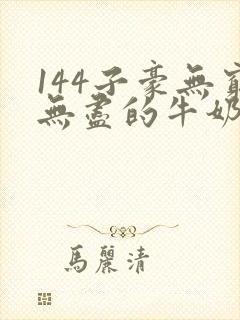 144子豪無窮
無盡的牛奶
馬麗清